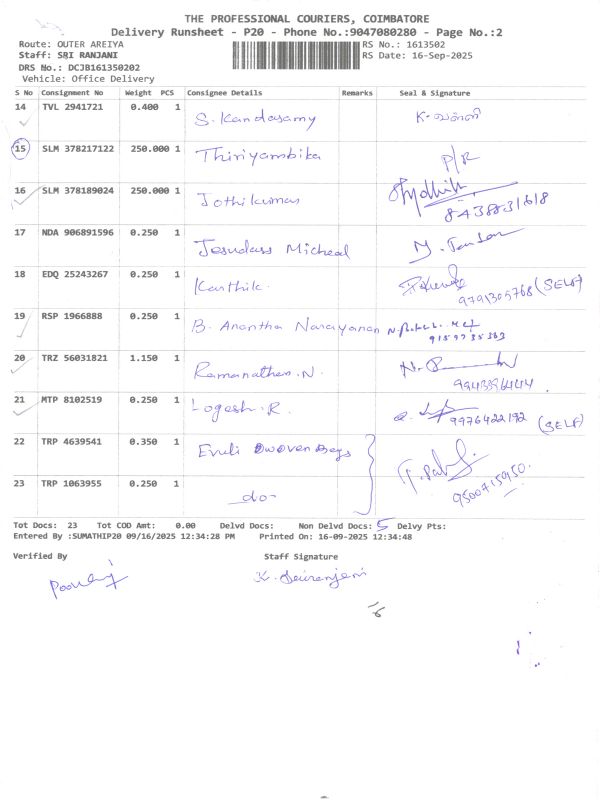 THE PROFESSIONAL COURIERS, COIMBATORE
Delivery Runsheet - P20 - Phone No.:9047080280 - Page No.:2
Route: OUTER AREIYA RS No.: 1613502
Staff: SRI RANJANI RS Date: 16-Sep-2025
DRS No.: DCJB161350202
Vehicle: Office Delivery
S No Consignment No Weight PCS Consignee Details Remarks Seal & Signature
14 TVL 2941721 0.400 1 S. Kandasamy K. வள்ளி
15 SLM 378217122 250.000 1 Thiriyambika P/R
16 SLM 378189024 250.000 1 Jothikumar 8438831618
17 NDA 906891596 0.250 1 Jesudass Micheal
18 EDQ 25243267 0.250 1 Karthik. 9791305768 (SELF)
19 RSP 1966888 0.250 1 B. Anantha Narayanan 9159735363
20 TRZ 56031821 1.150 1 Ramanathan.N.
21 MTP 8102519 0.250 1 Logesh.R. 9976422192 (SELF)
22 TRP 4639541 0.350 1 Bags
23 TRP 1063955 0.250 1 -do- 9500715950.
Tot Docs: 23 Tot COD Amt: 0.00 Delvd Docs: Non Delvd Docs: 5 Delvy Pts:
Entered By :SUMATHIP20 09/16/2025 12:34:28 PM Printed On: 16-09-2025 12:34:48
Verified By Staff Signature